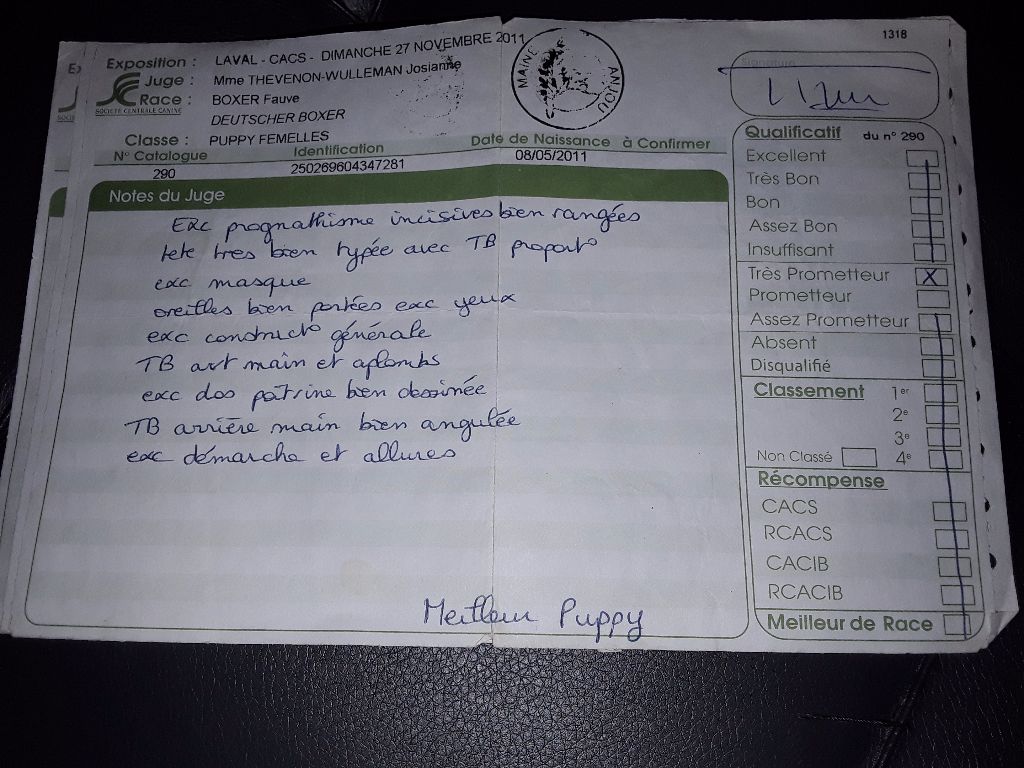 1318
Exposition : LAVAL - CACS - DIMANCHE 27 NOVEMBRE 2011
Juge : Mme THEVENON-WULLEMAN Josianne
Race : BOXER Fauve
SOCIETE CENTRALE CANINE
DEUTSCHER BOXER
Classe : PUPPY FEMELLES
N° Catalogue Identification Date de Naissance à Confirmer
290 250269604347281 08/05/2011
MAINE ANJOU
Notes du Juge
Exc prognathisme incisives bien rangées
tete tres bien typée avec TB proport°
exc masque
oreilles bien portées exc yeux
exc construct° générale
TB avt main et aplombs
exc dos poitrine bien dessinée
TB arrière main bien angulée
exc démarche et allures
Meilleur Puppy
Signature
Qualificatif du n° 290
Excellent
Très Bon
Bon
Assez Bon
Insuffisant
Très Prometteur X
Prometteur
Assez Prometteur
Absent
Disqualifié
Classement 1er
2e
3e
Non Classé 4e
Récompense
CACS
RCACS
CACIB
RCACIB
Meilleur de Race